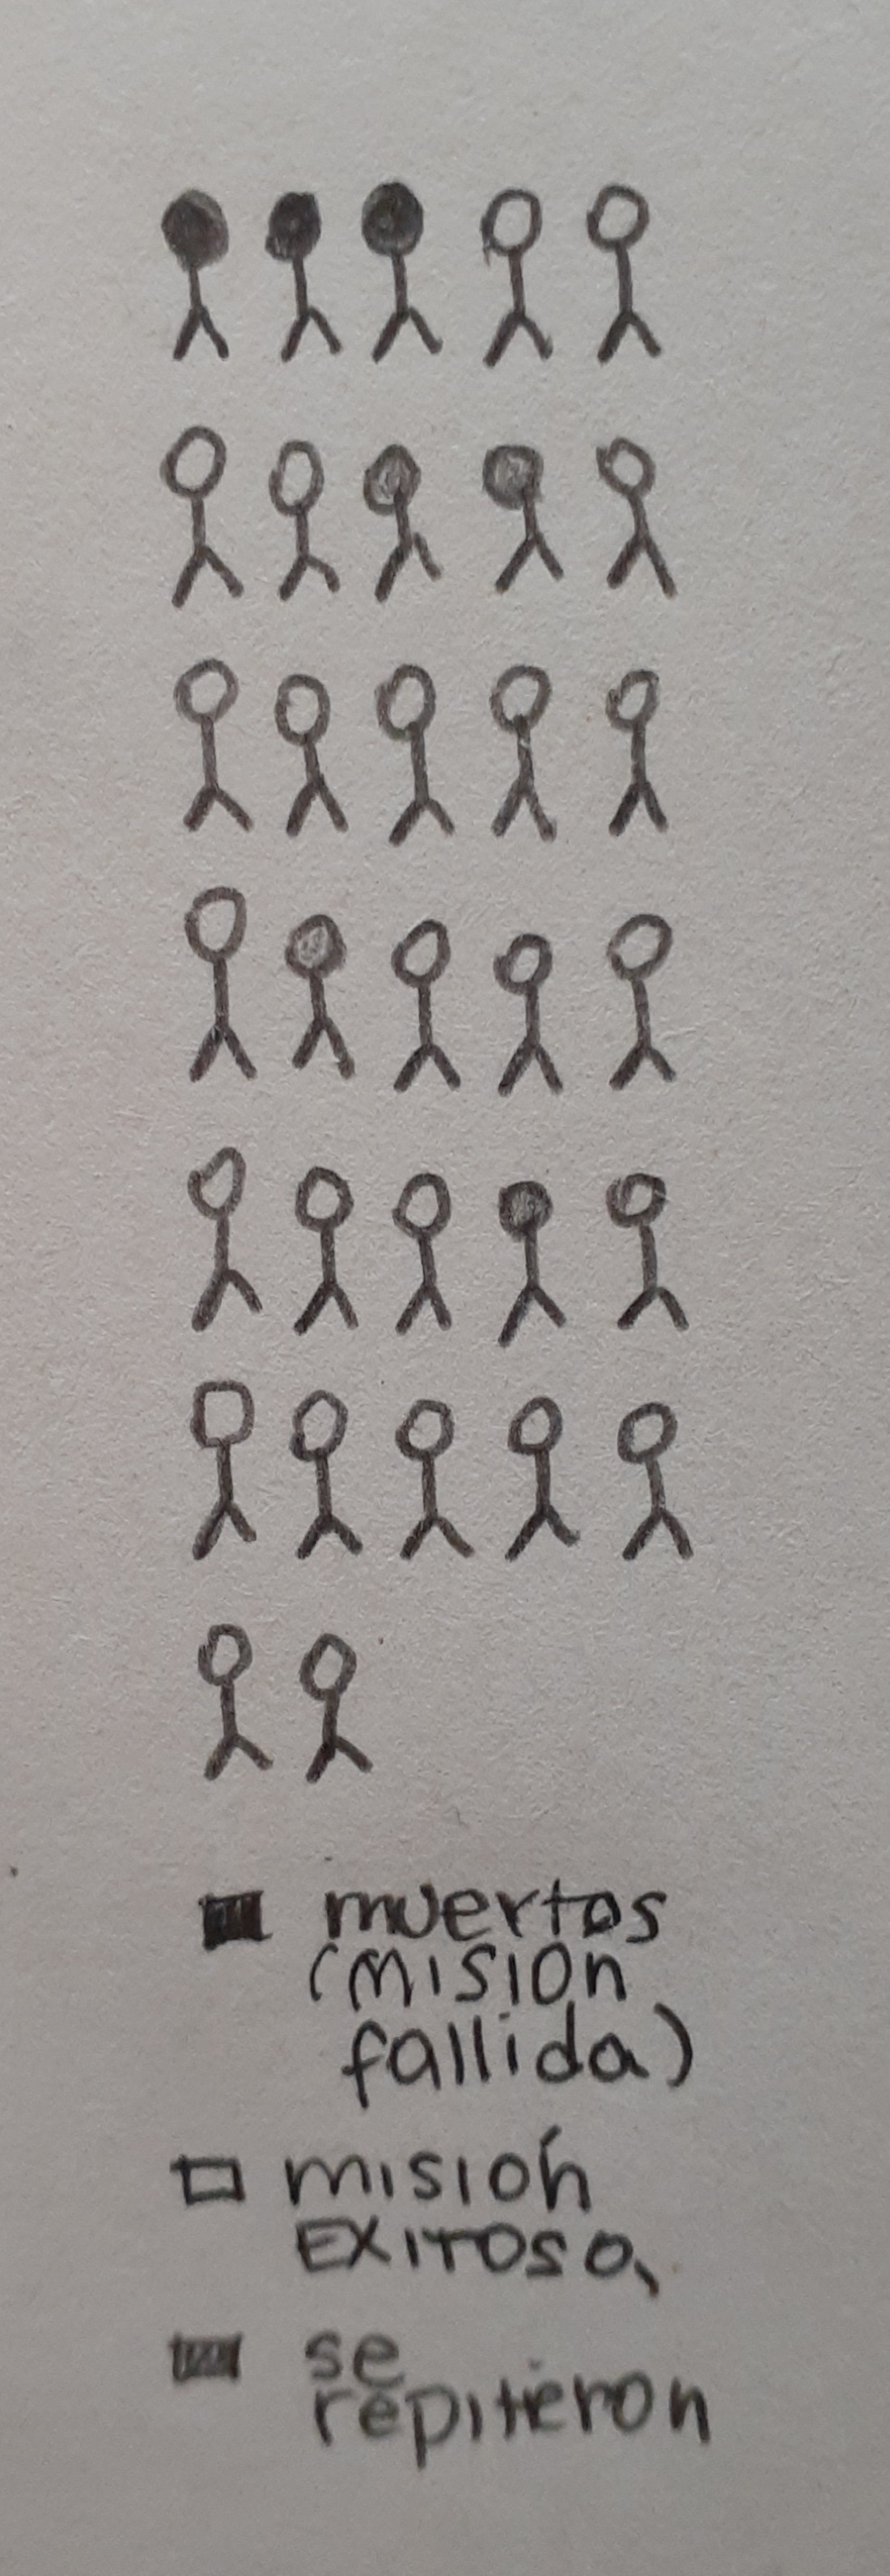 muertos
(misión
fallida)
misión
EXITOSa
se
repitieron